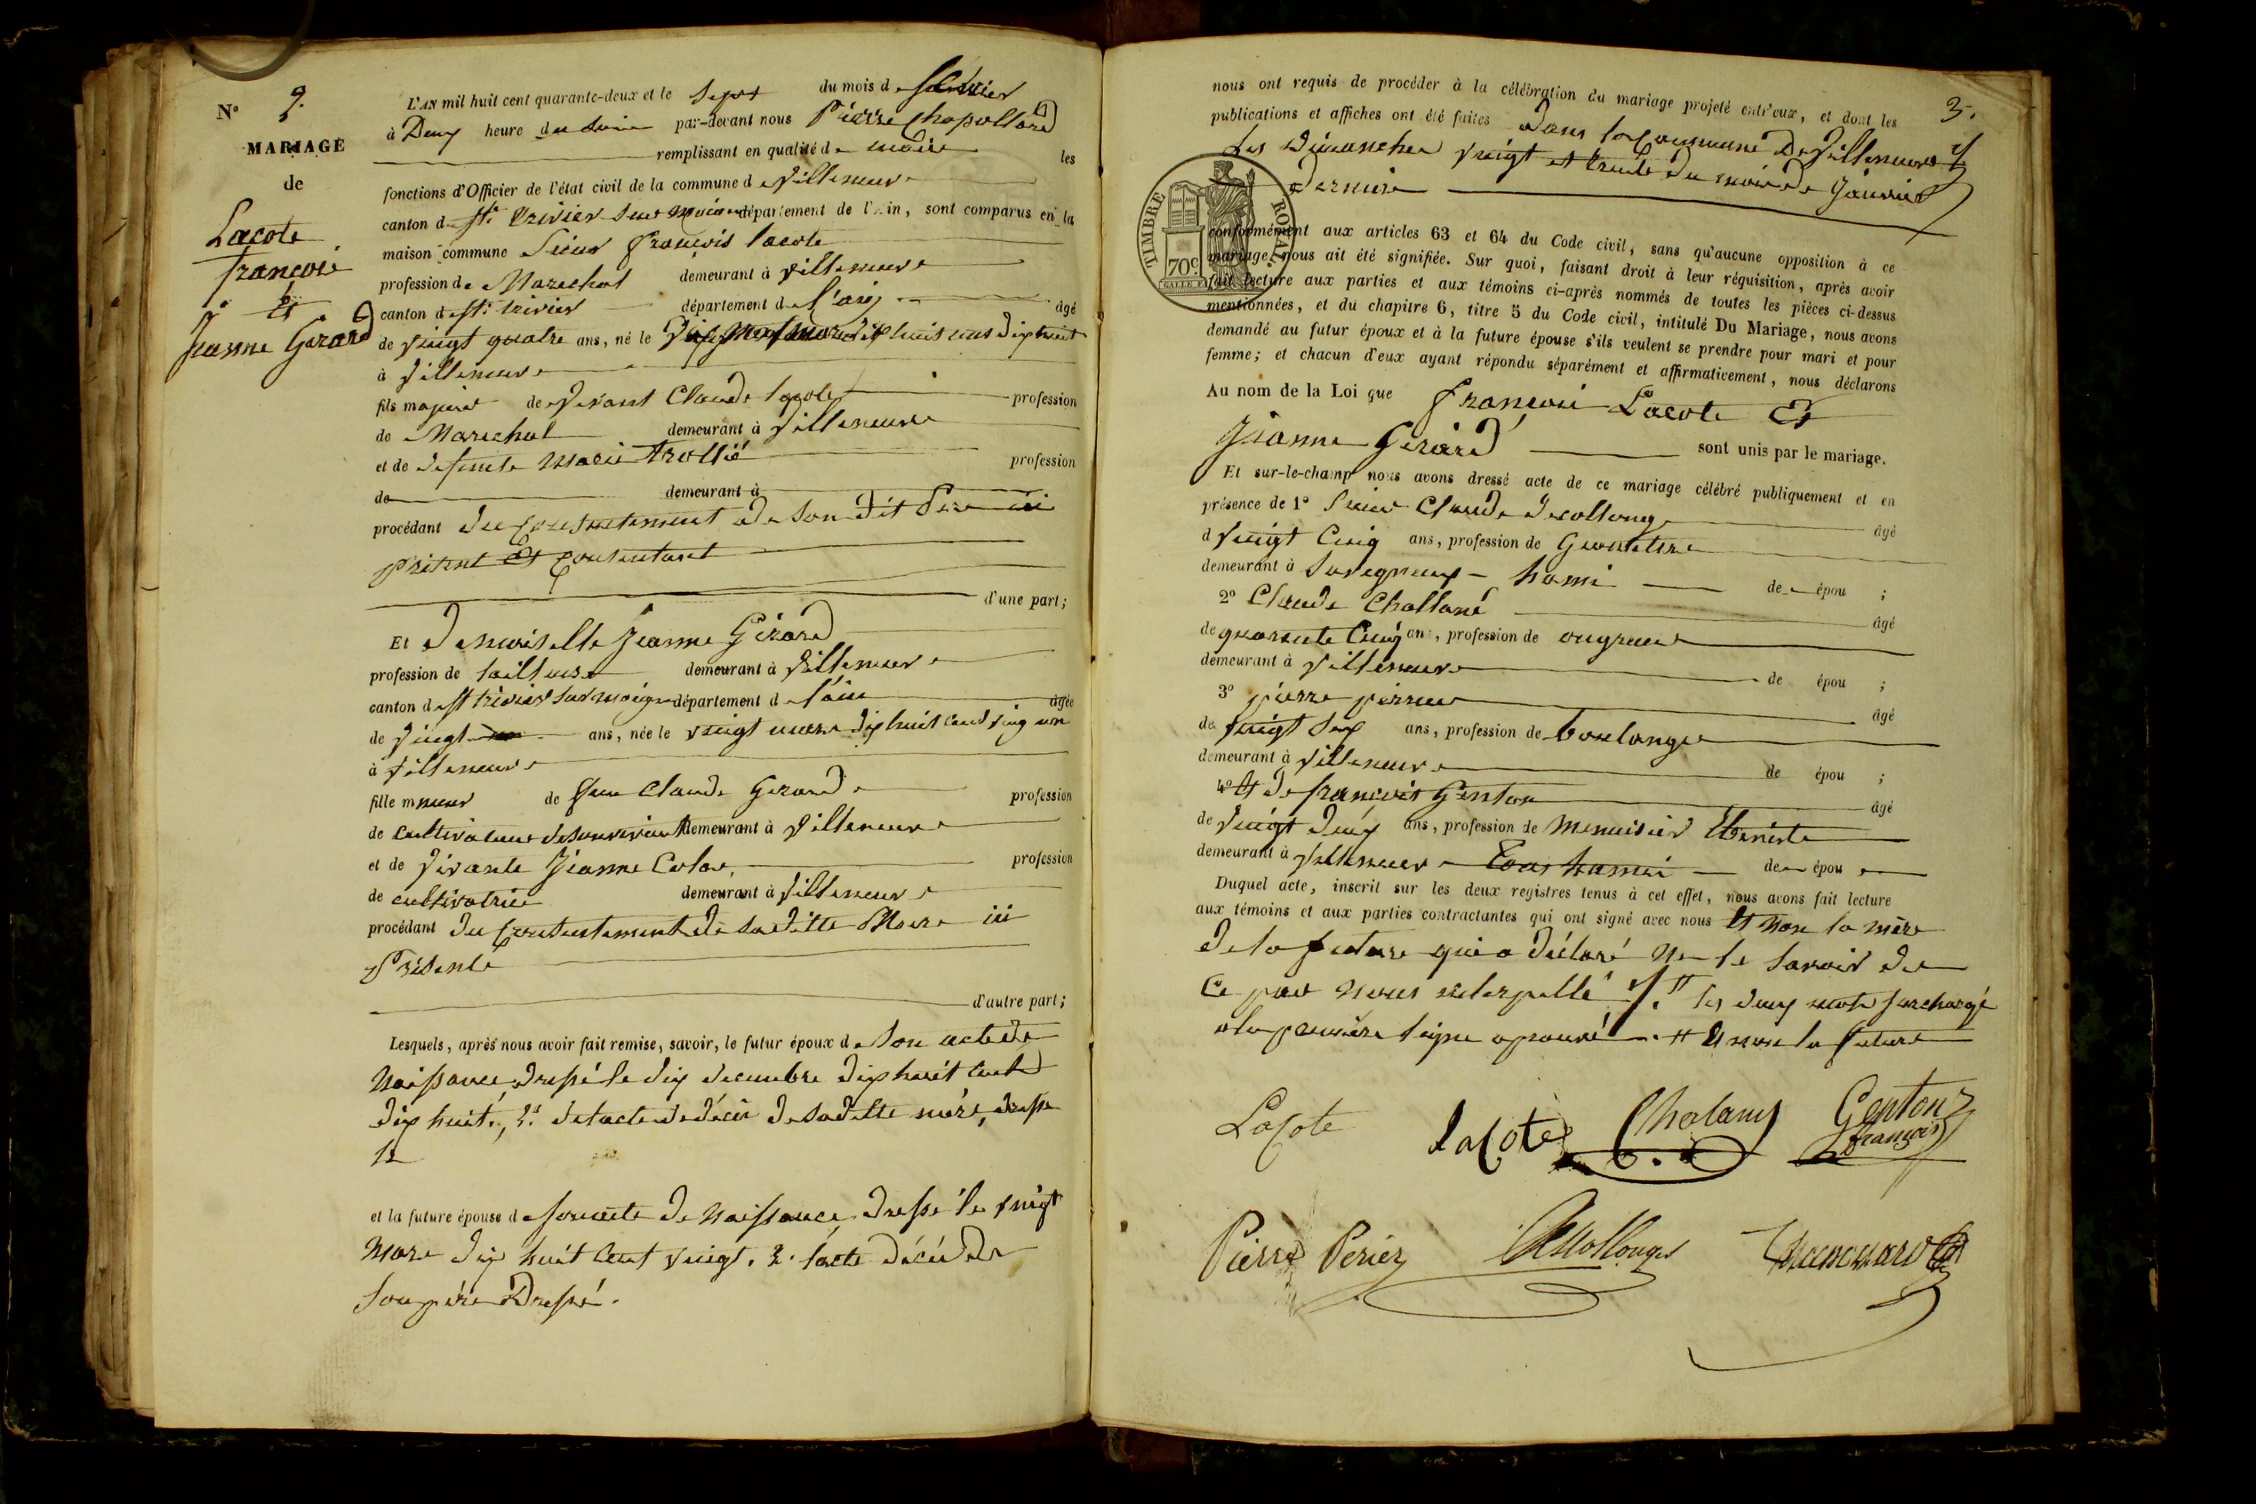 N° 9.
MARIAGE
de
Lacote
françois
et
Jeanne Gerard
L'AN mil huit cent quarante-deux et le sept du mois de fevrier
à Deux heure du Soir par-devant nous Pierre
remplissant en qualité de maire les
fonctions d'Officier de l'état civil de la commune de Villeneuve
canton de St. trivier sur moignans département de l'Ain, sont comparus en la
maison commune Sieur françois lacote
profession de Marechal demeurant à Villeneuve
canton de St. trivier département de l'ain âgé
de vingt quatre ans, né le dix huit cent dix huit
à Villeneuve
fils majeur de vivant Claude lacote profession
de Marechal demeurant à Villeneuve
et de defunte Marie profession
de demeurant à
procédant du Consentement de son dit Père ici
présent et Consentant
d'une part;
Et demoiselle Jeanne Gérard
profession de tailleuse demeurant à Villeneuve
canton de St trivier sur moignans département de l'ain âgée
de Vingt ans, née le vingt mars dix huit cent vingt un
à Villeneuve
fille mineur de feu Claude Gerard profession
de cultivateur de son vivant demeurant à Villeneuve
et de Vivante Jeanne profession
de cultivatrice demeurant à Villeneuve
procédant du Consentement de sa ditte Mere ici
Présente
d'autre part;
Lesquels, après nous avoir fait remise, savoir, le futur époux de son acte de
Naissance dressé le dix decembre dix huit cent
dix huit, 2° de l'acte de décès de sa ditte mère, dressé
le
et la future épouse de son acte de Naissance dressé le vingt
Mars dix huit cent vingt. 2. l'acte décès de
son père Dressé.
3.
nous ont requis de procéder à la célébration du mariage projeté entr'eux, et dont les
publications et affiches ont été faites dans la Commune de Villeneuve
les dimanches vingt et trente du mois de Janvier
dernier
TIMBRE ROYAL
70c
conformément aux articles 63 et 64 du Code civil, sans qu'aucune opposition à ce
mariage nous ait été signifiée. Sur quoi, faisant droit à leur réquisition, après avoir
fait lecture aux parties et aux témoins ci-après nommés de toutes les pièces ci-dessus
mentionnées, et du chapitre 6, titre 5 du Code civil, intitulé Du Mariage, nous avons
demandé au futur époux et à la future épouse s'ils veulent se prendre pour mari et pour
femme; et chacun d'eux ayant répondu séparément et affirmativement, nous déclarons
Au nom de la Loi que françois Lacote et
Jeanne Gerard sont unis par le mariage.
Et sur-le-champ nous avons dressé acte de ce mariage célébré publiquement et en
présence de 1° Sieur Claude Decollonge âgé
d vingt Cinq ans, profession de Geometre
demeurant à Savigneux hami de époux ;
2° Claude Challané âgé
de quarante Cinq ans, profession de
demeurant à Villeneuve de épou ;
3° pierre perrier âgé
de vingt Six ans, profession de boulanger
demeurant à Villeneuve de épou ;
4° et de françois Genton âgé
de Vingt deux ans, profession de Menuisier Ebeniste
demeurant à Villeneuve tous hamis de épou
Duquel acte, inscrit sur les deux registres tenus à cet effet, nous avons fait lecture
aux témoins et aux parties contractantes qui ont signé avec nous et non la mère
de la future qui a déclaré ne le savoir de
Ce par nous interpellé les deux mots surchargé
a la première ligne aprouvé. et non la future
LaCote laCote Chalany Genton
françois
Pierre Periez Decollonges